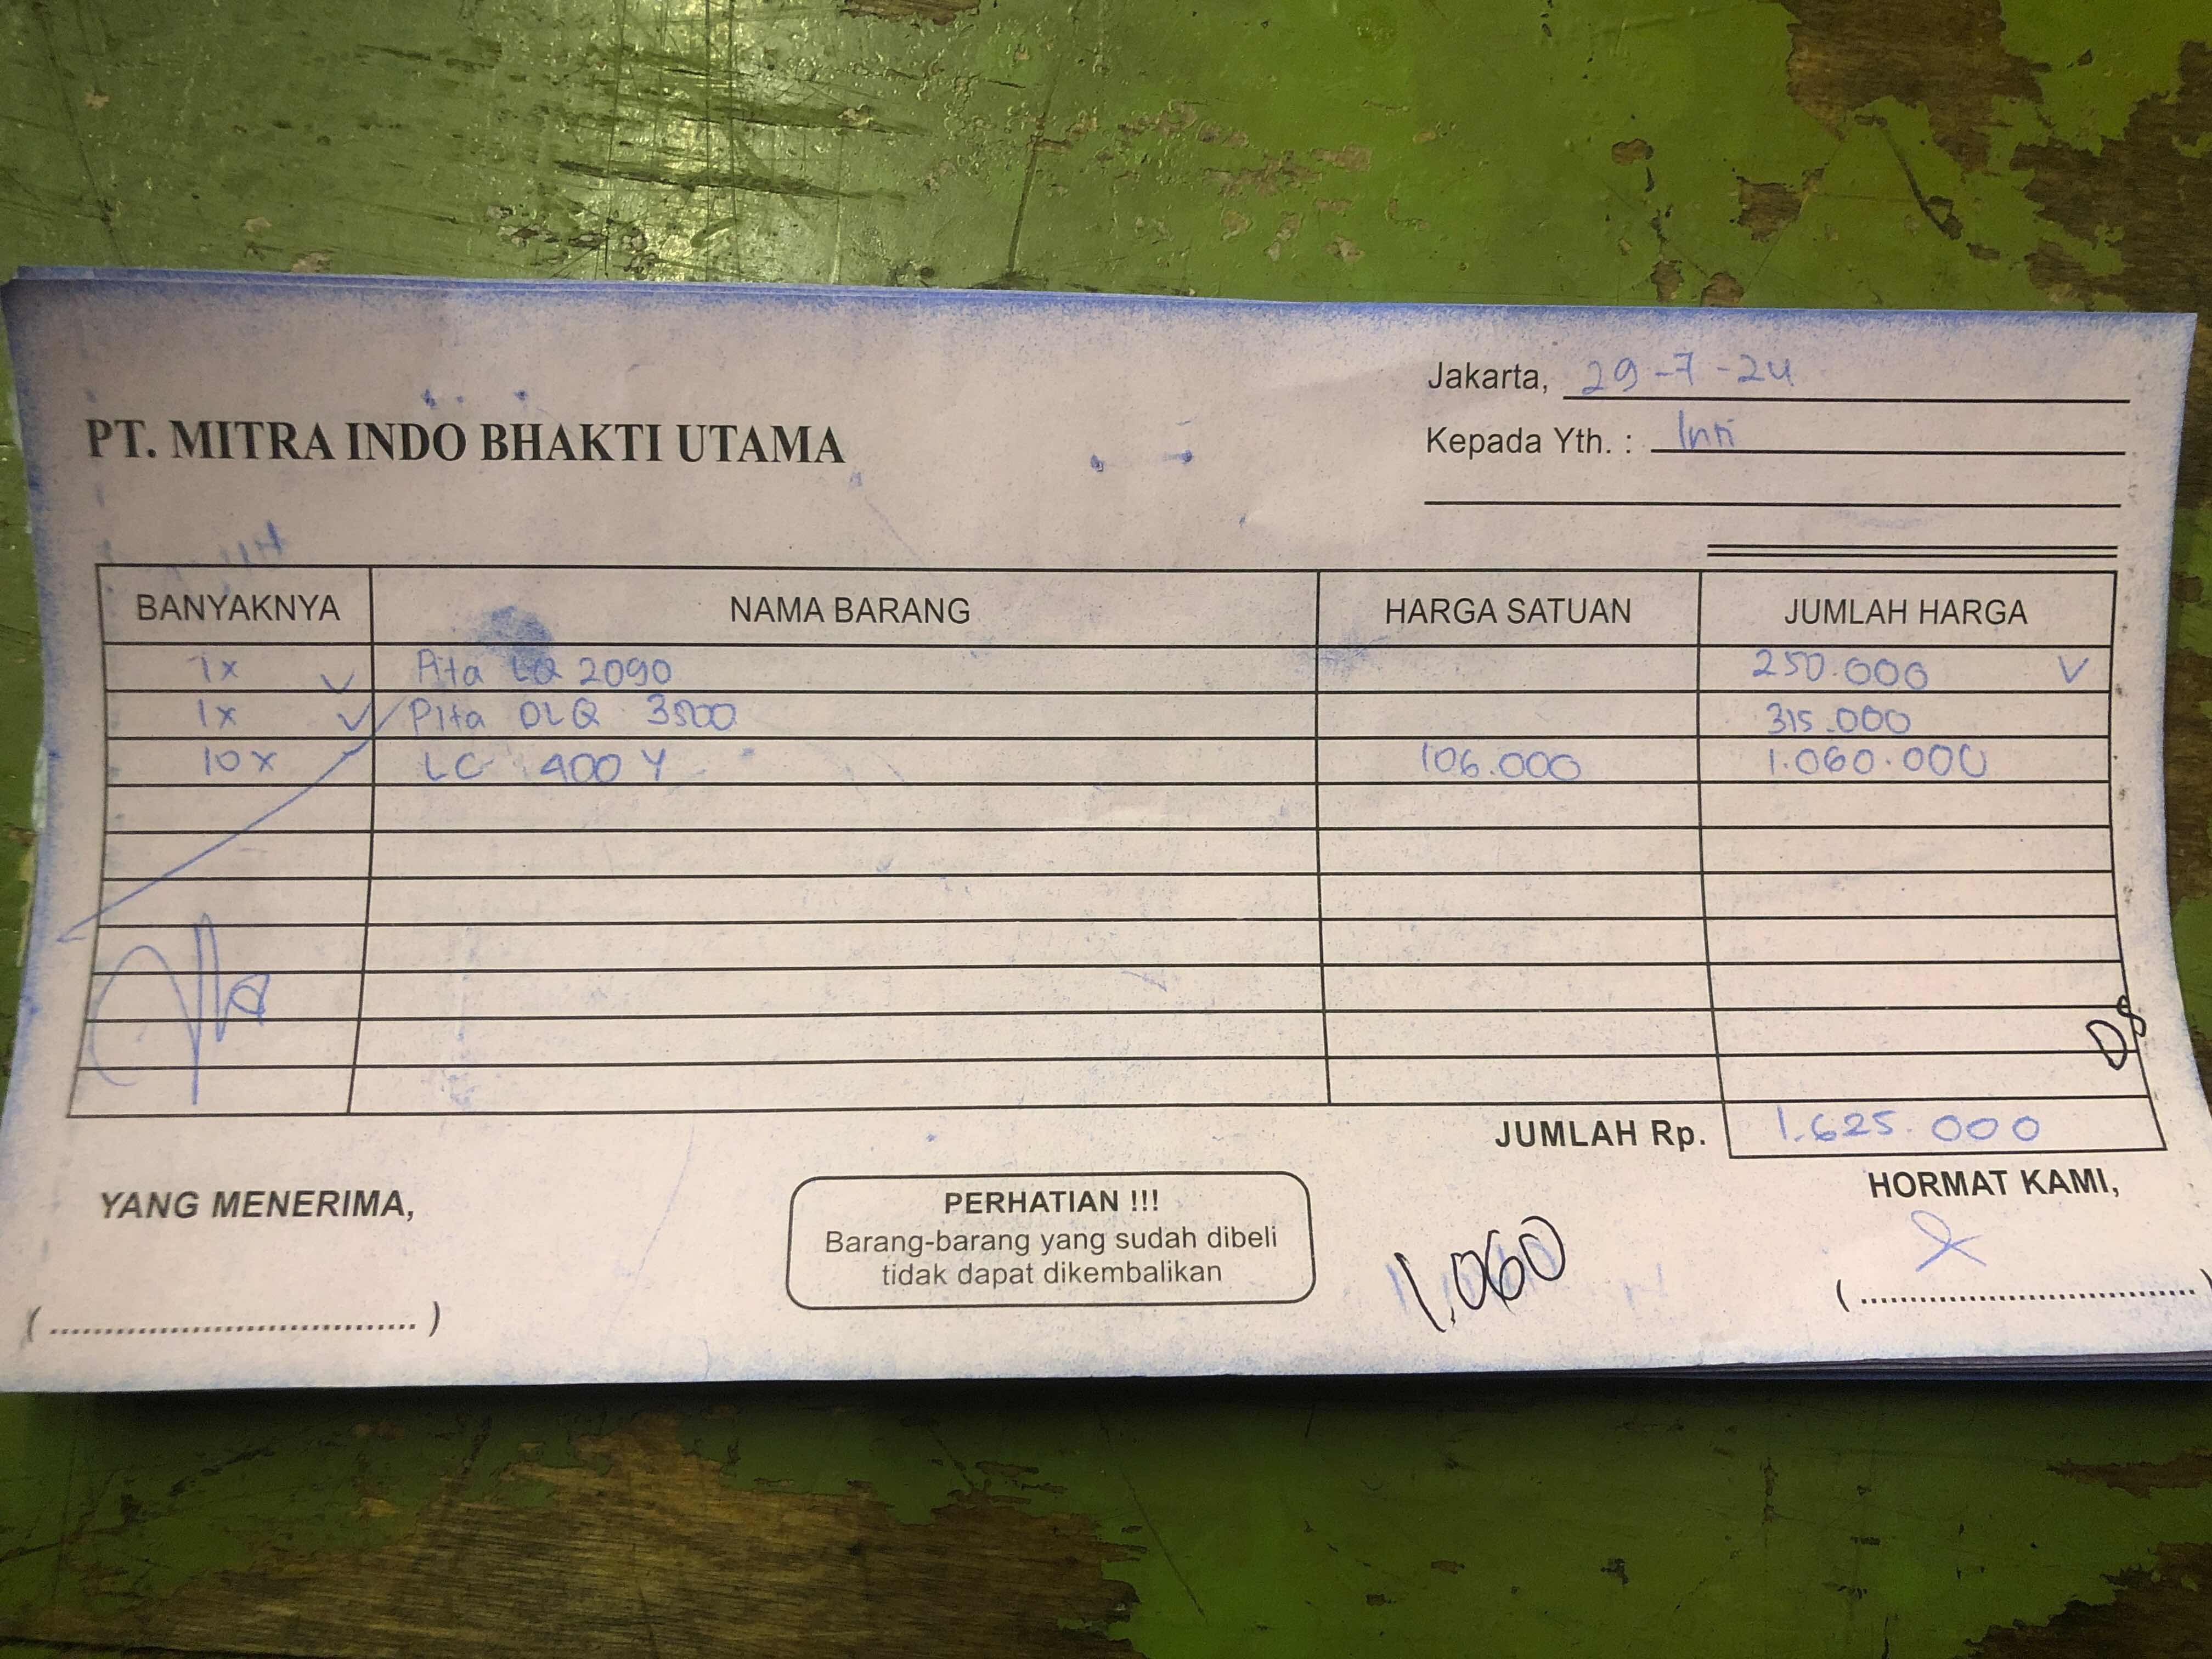 Jakarta, 29-7-24
PT. MITRA INDO BHAKTI UTAMA
Kepada Yth. : Inti
BANYAKNYA NAMA BARANG HARGA SATUAN JUMLAH HARGA
1x Pita LQ 2090 250.000
1x Pita DLQ 3500 315.000
10x LC 400 Y 106.000 1.060.000
JUMLAH Rp. 1.625.000
YANG MENERIMA,
PERHATIAN !!!
Barang-barang yang sudah dibeli
tidak dapat dikembalikan
1.060
HORMAT KAMI,